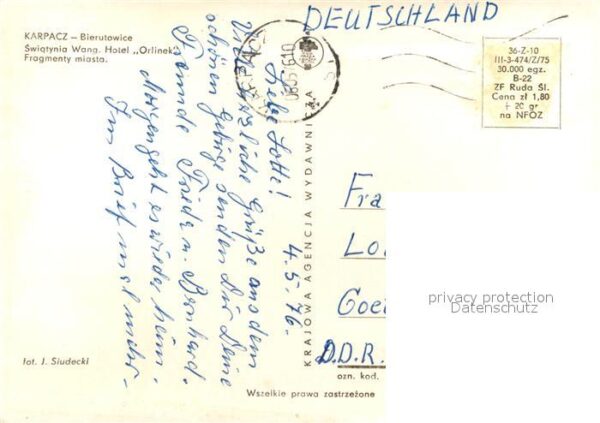 KARPACZ — Bierutowice
Świątynia Wang. Hotel „Orlinek”
Fragmenty miasta.
DEUTSCHLAND
KARPACZ
36-Z-10
III-3-474/Z/75
30.000 egz.
B-22
ZF Ruda Śl.
Cena zł 1,80
+ 20 gr
na NFOZ
4.5.76.
Liebe Lotte!
Viele herzliche Grüße aus dem
schönen Gebirge senden Dir Deine
Freunde Frieda u. Bernhard.
Morgen geht es wieder heim.
Im Brief mal mehr.
KRAJOWA AGENCJA WYDAWNICZA
Fra
Lo
Goe
D.D.R.
ozn. kod.
privacy protection
Datenschutz
fot. J. Siudecki
Wszelkie prawa zastrzeżone